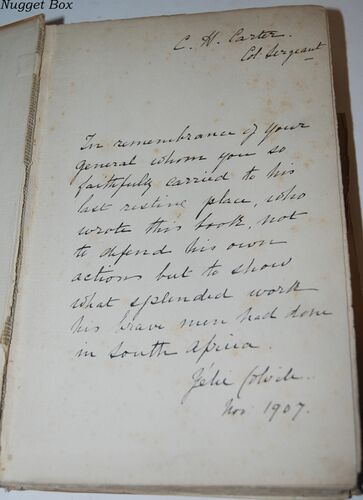 Nugget Box
C. H. Carter.
Col. Sergeant
In remembrance of your
General whom you so
faithfully carried to his
last resting place, who
wrote this book, not
to defend his own
actions but to show
what splendid work
his brave men had done
in South Africa.
Zélie Colvile.
Nov. 1907.